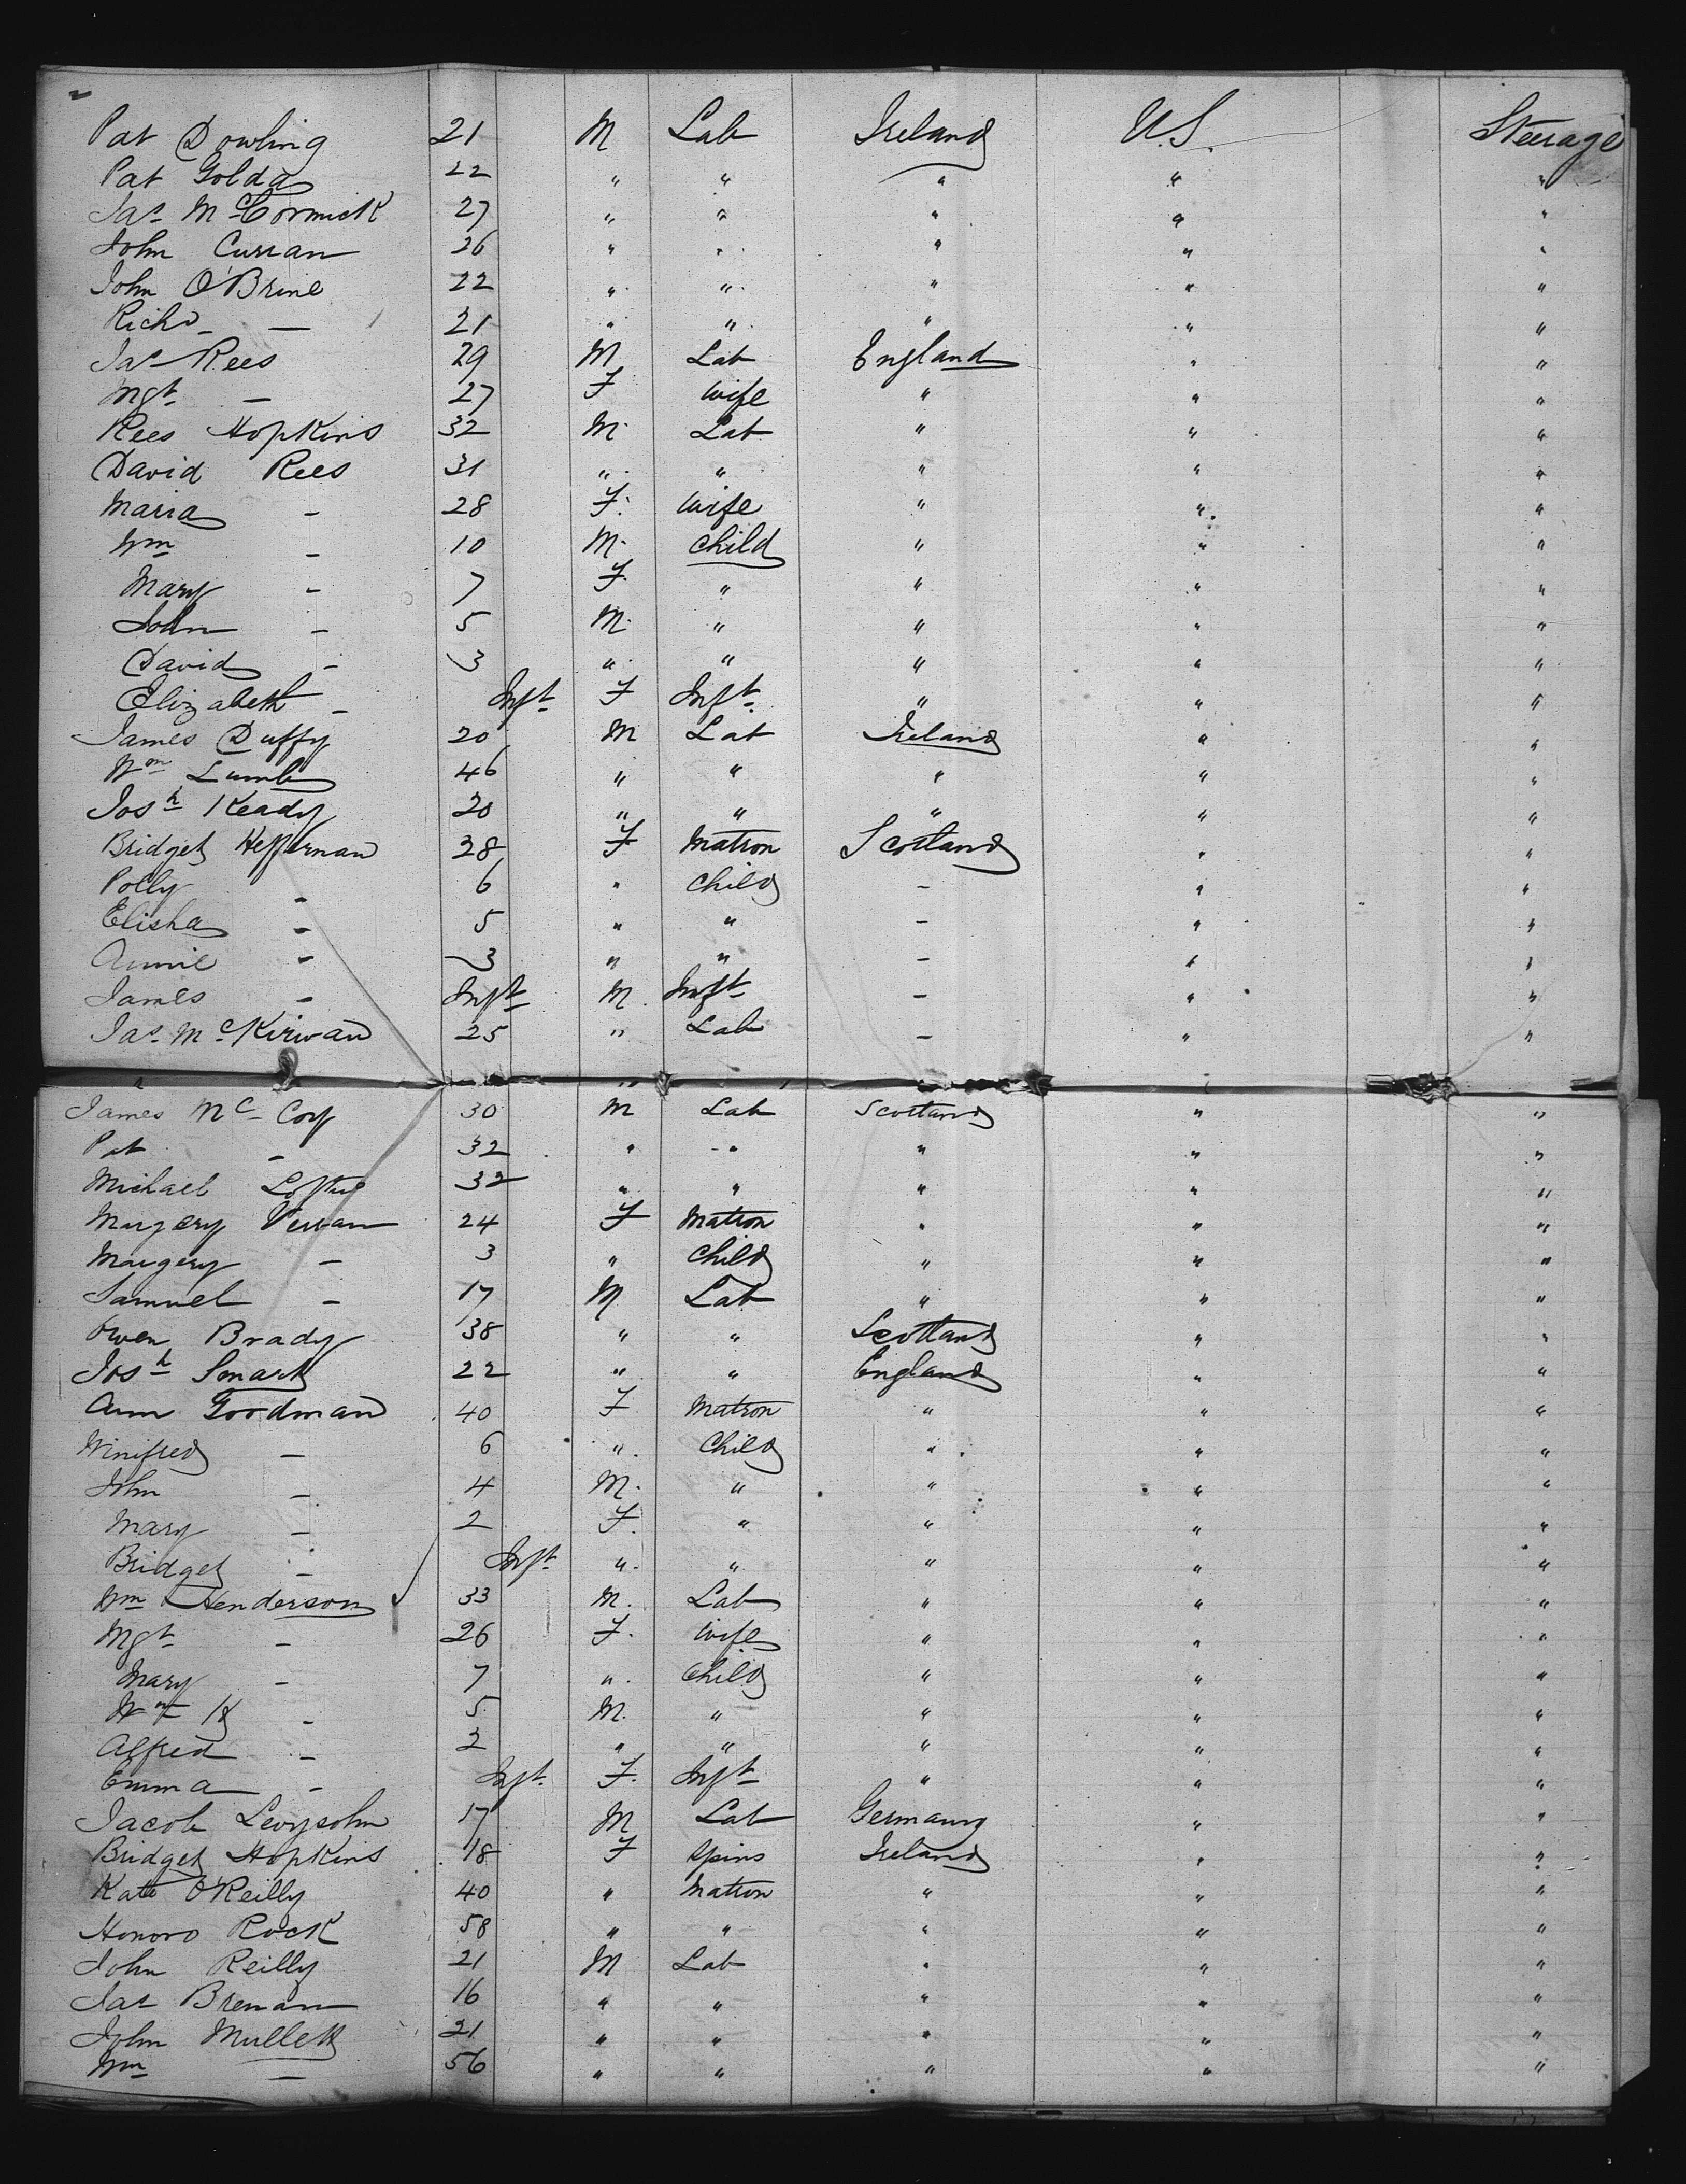 Pat Dowling 21 M Lab Ireland U.S. Steerage
Pat Golda 22 " " " " "
Jas McCormick 27 " " " " "
John Curran 26 " " " " "
John O'Brine 22 " " " " "
Richd — 21 " " " " "
Jas Rees 29 M Lab England " "
Mgt — 27 F Wife " " "
Rees Hopkins 32 M Lab " " "
David Rees 31 " " " " "
Maria - 28 F Wife " " "
Wm - 10 M Child " " "
Mary - 7 F " " " "
John - 5 M " " " "
David - 3 " " " " "
Elizabeth - Inft F Inft " " "
James Duffy 20 M Lab Ireland " "
Wm Lumb 46 " " " " "
Josh Keady 20 " " " " "
Bridget Heffernan 28 F Matron Scotland " "
Polly - 6 " Child - " "
Elisha - 5 " " - " "
Annie - 3 " " - " "
James - Inft M Inft - " "
Jas McKirwan 25 " Lab - " "
James McCoy 30 M Lab Scotland " "
Pat - 32 " " " " "
Michael Loftus 32 " " " " "
Margery 24 F Matron " " "
Margery - 3 " Child " " "
Samuel - 17 M Lab " " "
Owen Brady 38 " " Scotland " "
Josh Smart 22 " " England " "
Ann Goodman 40 F Matron " " "
Winifred — 6 " Child " " "
John - 4 M " " " "
Mary - 2 F " " " "
Bridget - Inft " " " " "
Wm Henderson 33 M Lab " " "
Mgt - 26 F Wife " " "
Mary - 7 " Child " " "
Wm H - 5 M " " " "
Alfred - 2 " " " " "
Emma - Inft F Inft " " "
Jacob Levysohn 17 M Lab Germany " "
Bridget Hopkins 18 F Spins Ireland " "
Kate O'Reilly 40 " Matron " " "
Honoro Rock 58 " " " " "
John Reilly 21 M Lab " " "
Jas Brenan 16 " " " " "
John Mullett 21 " " " " "
Wm — 56 " " " " "